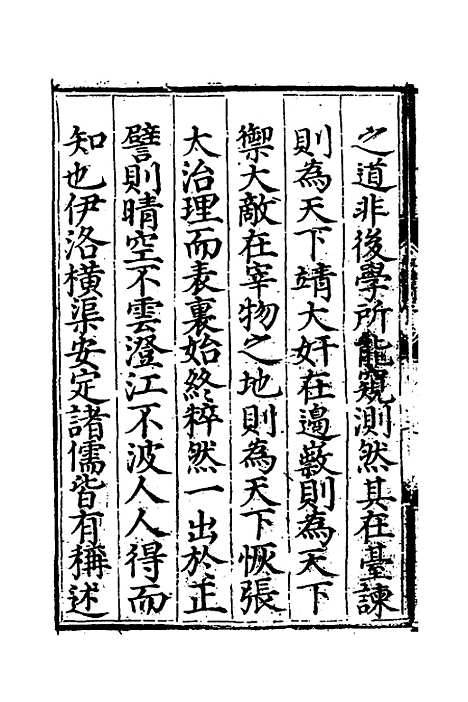 之道非後學所能窺測然其在臺諫
則為天下靖大奸在邉徼則為天下
禦大敵在宰物之地則為天下恢張
太治理而表裏始終粹然一出於正
譬則晴空不雲澄江不波人人得而
知也伊洛橫渠安定諸儒皆有稱述